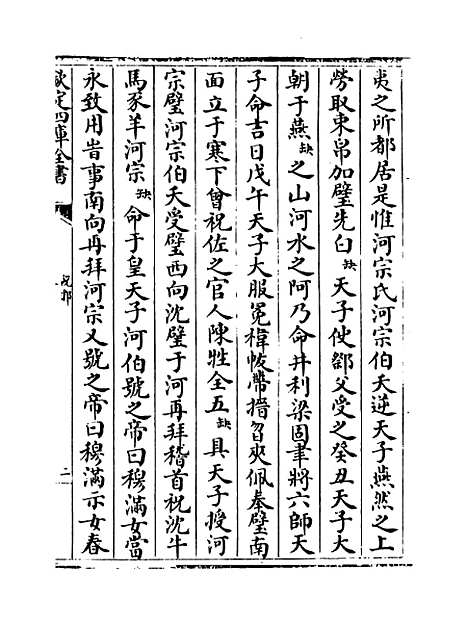 夷之所都居是惟河宗氏河宗伯夭逆天子燕然之上
勞取束帛加璧先白缺天子使䣝父受之癸丑天子大
朝于燕缺之山河水之阿乃命井利梁固聿將六師天
子命吉日戊午天子大服冕褘帗帶搢曶夾佩奉璧南
面立于寒下曾祝佐之官人陳牲全五缺具天子授河
宗璧河宗伯夭受璧西向沈璧于河再拜稽首祝沈牛
馬豕羊河宗缺命于皇天子河伯號之帝曰穆滿女當
永致用旹事南向再拜河宗又號之帝曰穆滿示女春
欽定四庫全書
二